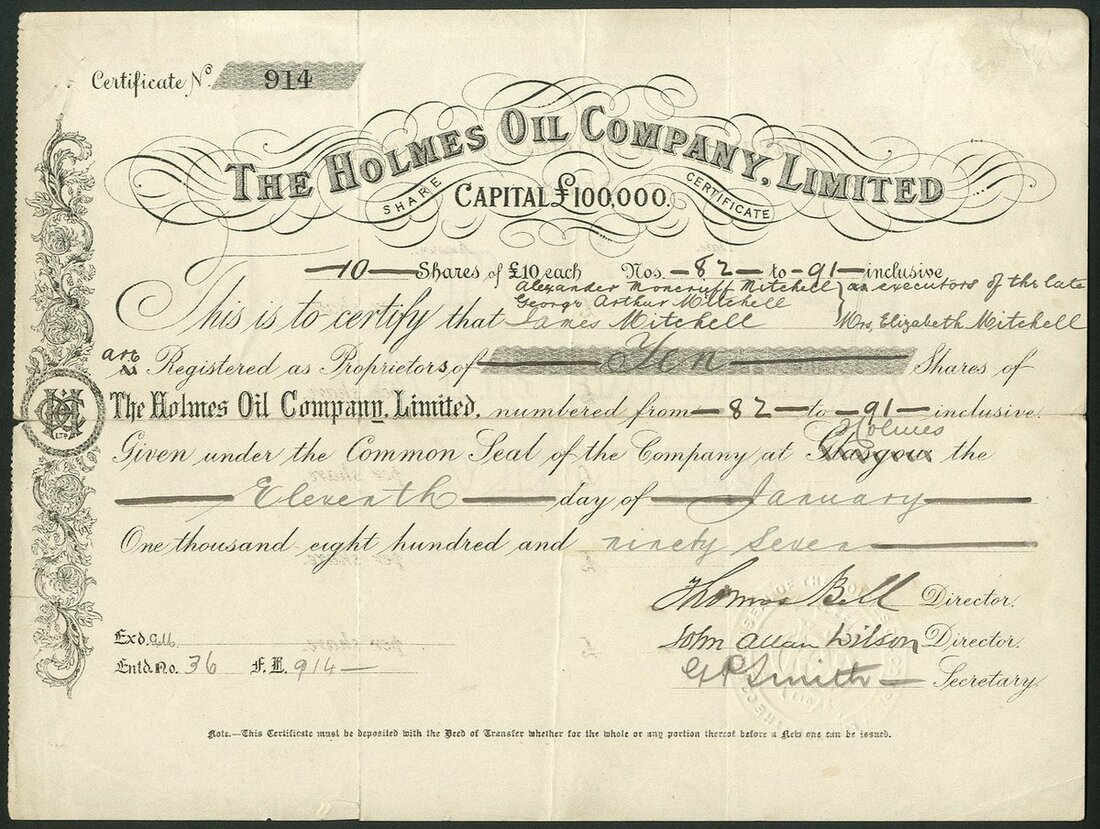 Certificate No. 914
THE HOLMES OIL COMPANY, LIMITED
SHARE CAPITAL £100,000. CERTIFICATE
—10— Shares of £10 each Nos. —82— to —91— inclusive
Alexander Moncrieff Mitchell } as executors of the late
George Arthur Mitchell
This is to certify that James Mitchell Mrs. Elizabeth Mitchell
are
Registered as Proprietors, of Ten Shares of
The Holmes Oil Company, Limited, numbered from —82— to —91— inclusive.
Holmes
Given under the Common Seal of the Company at Glasgow the
Eleventh day of January
One thousand eight hundred and ninety Seven
Thomas Bell Director.
Exd.
John Allan Wilson Director.
Entd No. 36 F.L. 914—
G R Smith — Secretary.
Note.—This Certificate must be deposited with the Deed of Transfer whether for the whole or any portion thereof before a New one can be issued.
LTD